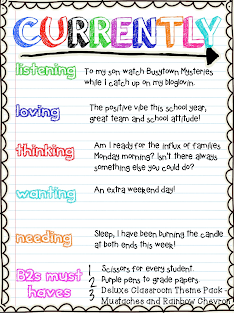 CURRENTLY
listening
To my son watch Busytown Mysteries
while I catch up on my bloglovin.
loving
The positive vibe this school year,
great team and school attitude!
thinking
Am I ready for the influx of families
Monday morning? Isn't there always
something else you could do?
wanting
An extra weekend day!
needing
Sleep, I have been burning the candle
at both ends this week!
B2s must
haves
1 Scissors for every student.
2 Purple pens to grade papers.
3 Deluxe Classroom Theme Pack -
Mustaches and Rainbow Chevron